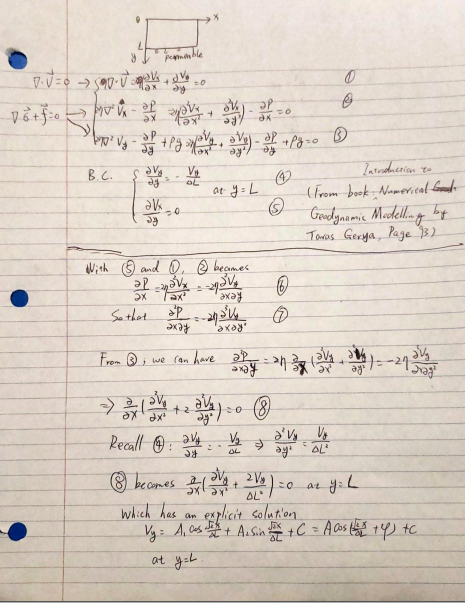 0 x
L
y permeable
∇·V⃗=0 → { ∇·V⃗ = ∂Vx/∂x + ∂Vy/∂y = 0 ①
∇σ⃗+f⃗=0 → η∇²Vx - ∂P/∂x ⇒ η(∂²Vx/∂x² + ∂²Vx/∂y²) - ∂P/∂x = 0 ②
η∇²Vy - ∂P/∂y + ρg ⇒ η(∂²Vy/∂x² + ∂²Vy/∂y²) - ∂P/∂y + ρg = 0 ③
B.C. { ∂Vy/∂y = - Vy/ΔL ④
at y=L
∂Vx/∂y = 0 ⑤
Introduction to
(From book: Numerical
Geodynamic Modelling by
Taras Gerya, Page 93)
With ⑤ and ①, ② becames
∂P/∂x = η ∂²Vx/∂x² = -2η ∂²Vy/∂x∂y ⑥
So that ∂²P/∂x∂y = -2η ∂³Vy/∂x∂y² ⑦
From ③, we can have ∂²P/∂x∂y = 2η ∂/∂x (∂²Vy/∂x² + ∂²Vy/∂y²) = -2η ∂³Vy/∂x∂y²
⇒ ∂/∂x (∂²Vy/∂x² + 2 ∂²Vy/∂y²) = 0 ⑧
Recall ④: ∂Vy/∂y = - Vy/ΔL ⇒ ∂²Vy/∂y² = Vy/ΔL²
⑧ becomes ∂/∂x (∂²Vy/∂x² + 2Vy/ΔL²) = 0 at y=L
Which has an explicit solution
Vy = A₁ cos √2x/ΔL + A₂ sin √2x/ΔL + C = A cos(√2x/ΔL + φ) + C
at y=L